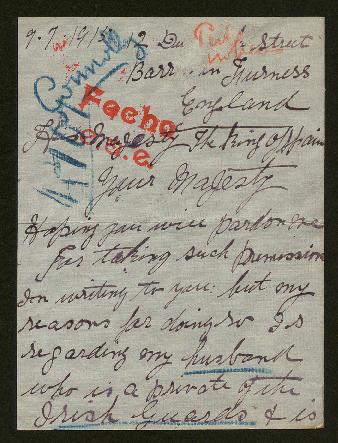 9.7.191 Street
Barr in Furness
England
Fecho
His Majesty The King of Spain
Your Majesty
Hoping you will pardon me
for taking such premission
In writing to you: but my
reasons for doing so Is
regarding my husband
who is a private of the
Irish Guards & is